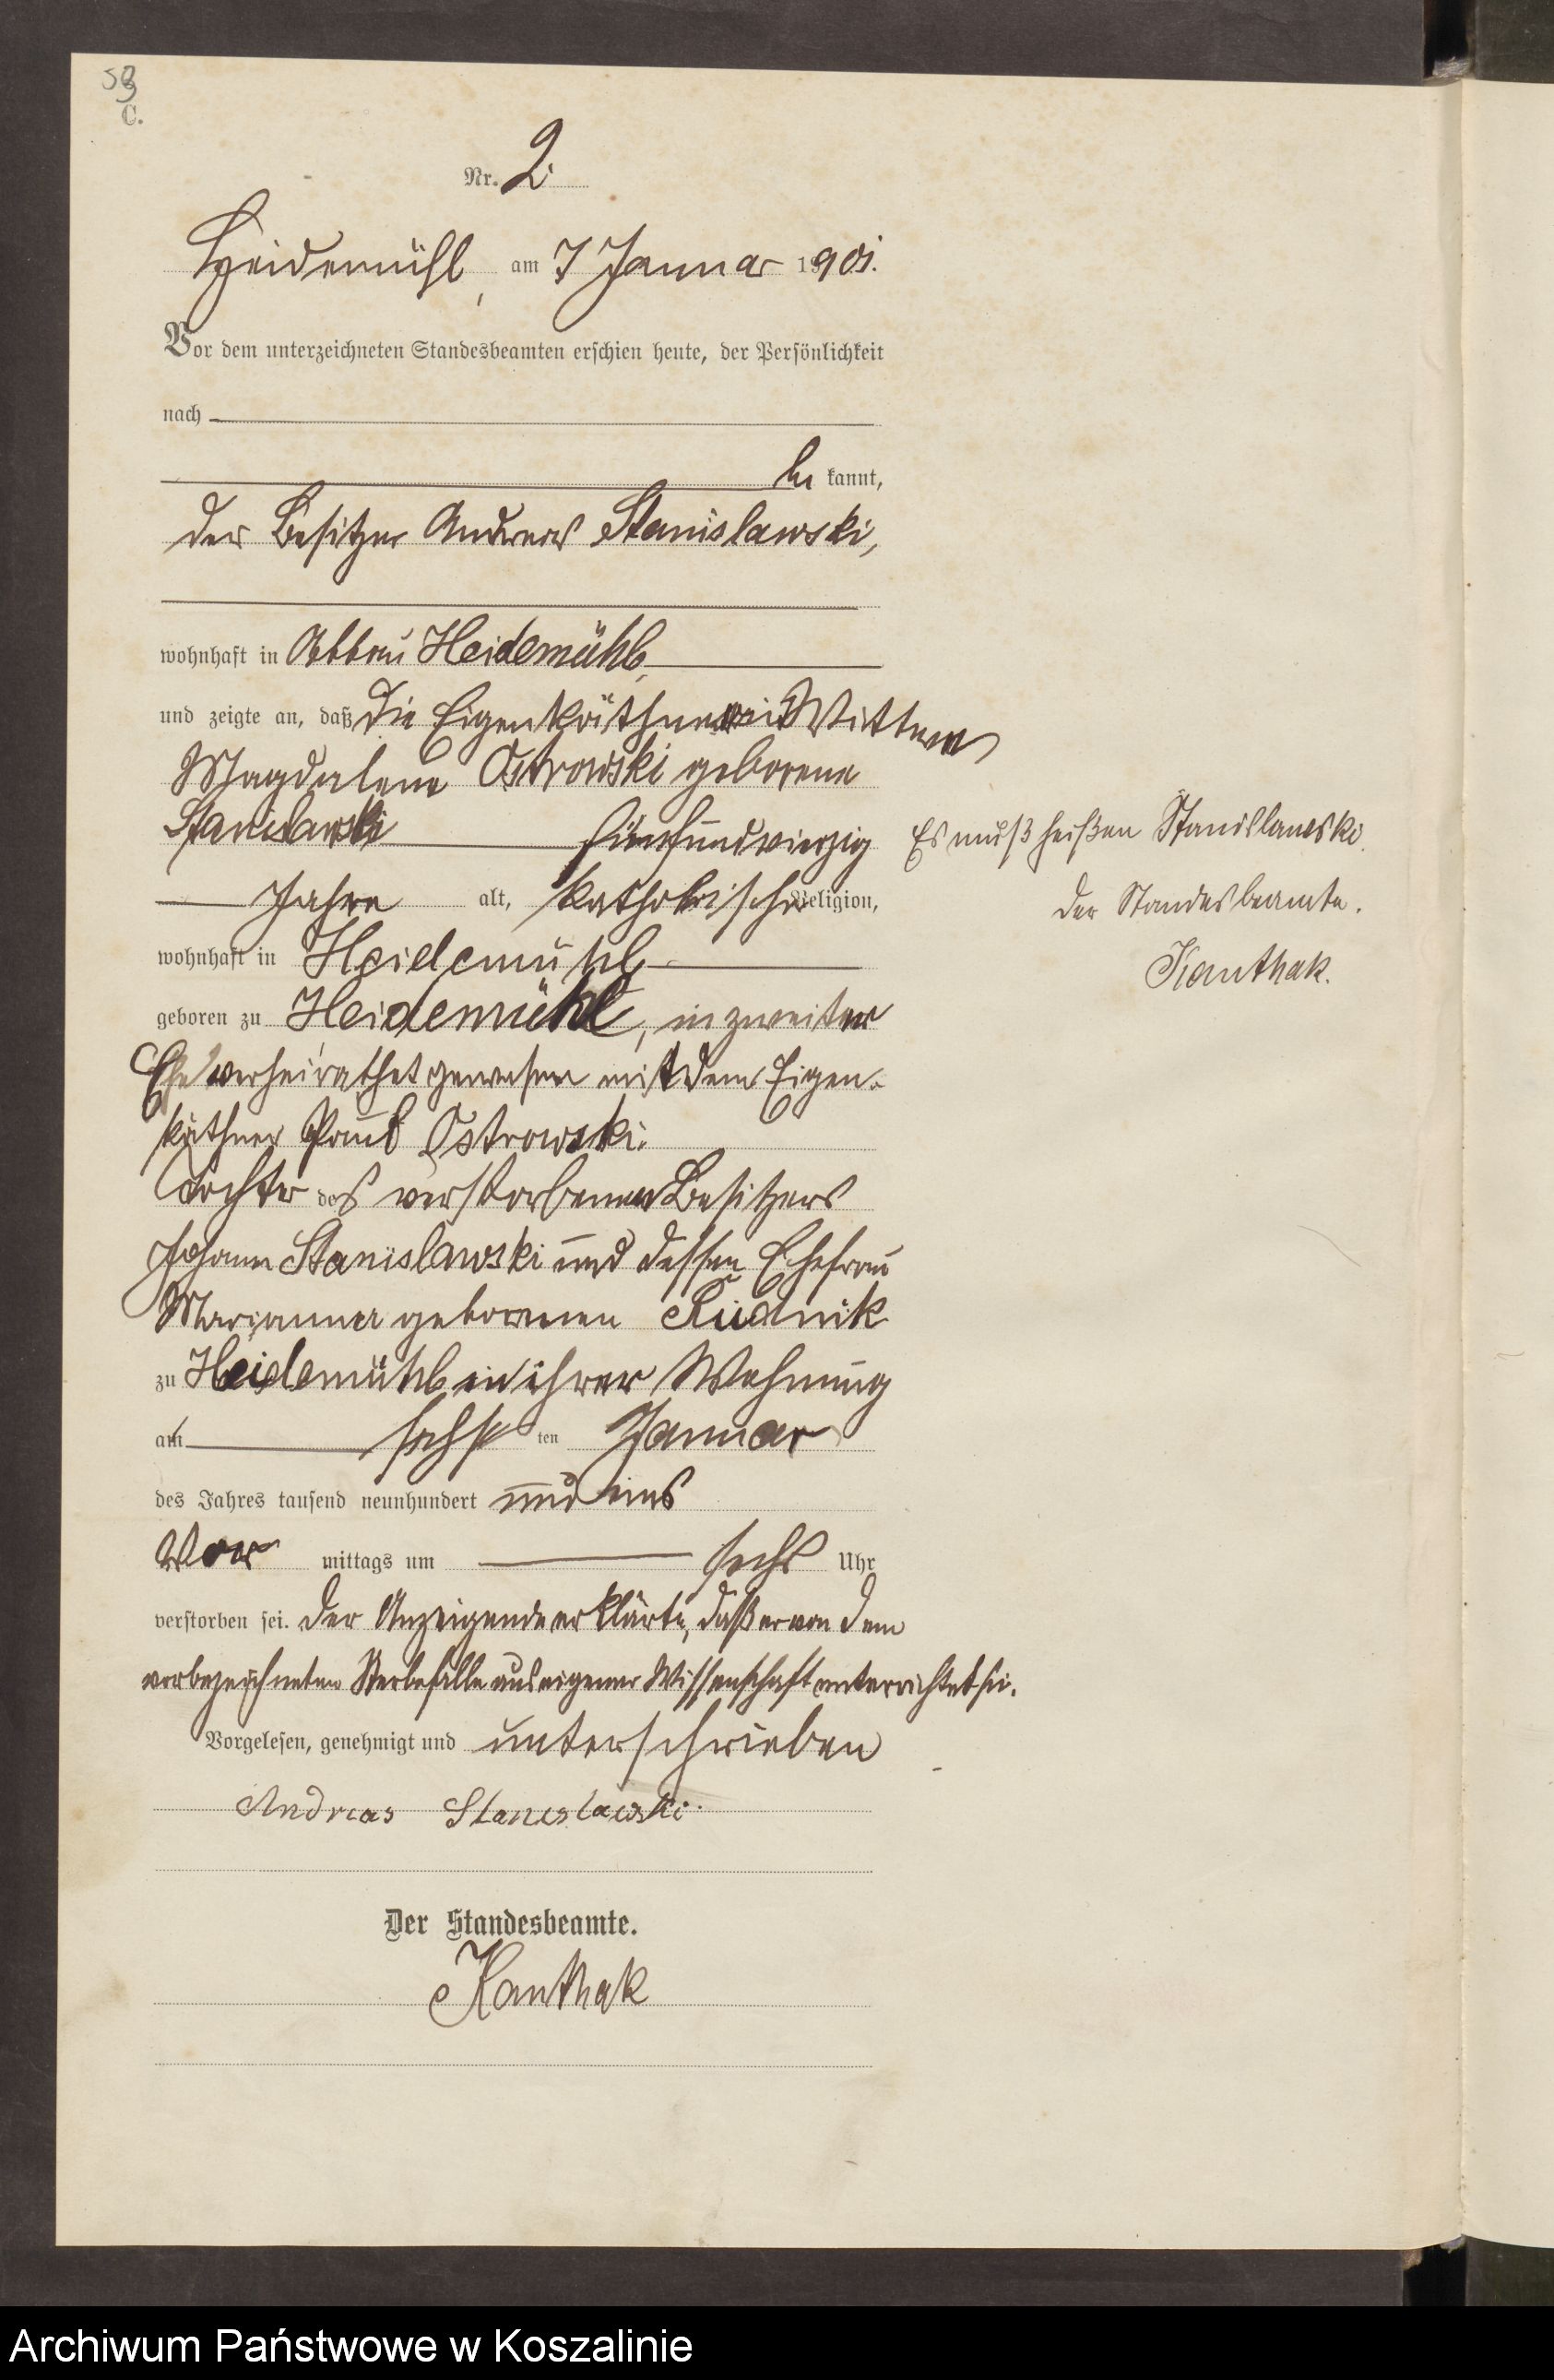 C.
Nr. 2.
Heidemühl, am 7 Januar 1901.
Vor dem unterzeichneten Standesbeamten erschien heute, der Persönlichkeit
nach
be kannt,
der Besitzer Andreas Stanislawski,
wohnhaft in Abbau Heidemühl,
und zeigte an, daß die Eigenkäthnerin Wittwe
Magdalena Ostrowski geborene
Stanislawski fünfundvierzig Es muß heißen Stanislawski.
Jahre alt, katholischer Religion, Der Standesbeamte.
wohnhaft in Heidemühl Kanthak.
geboren zu Heidemühl, in zweiter
Ehe verheirathet gewesen mit dem Eigen-
käthner Paul Ostrowski.
Tochter des verstorbenen Besitzers
Johann Stanislawski und dessen Ehefrau
Marianna geborenen Rudnik
zu Heidemühl in ihrer Wohnung
am sechs ten Januar
des Jahres tausend neunhundert und eins
Vor mittags um sechs Uhr
verstorben sei. Der Anzeigende erklärte, daß er von dem
vorbezeichneten Sterbefalle aus eigener Wissenschaft unterrichtet sei.
Vorgelesen, genehmigt und unterschrieben
Andreas Stanislawski.
Der Standesbeamte.
Kanthak
Archiwum Państwowe w Koszalinie